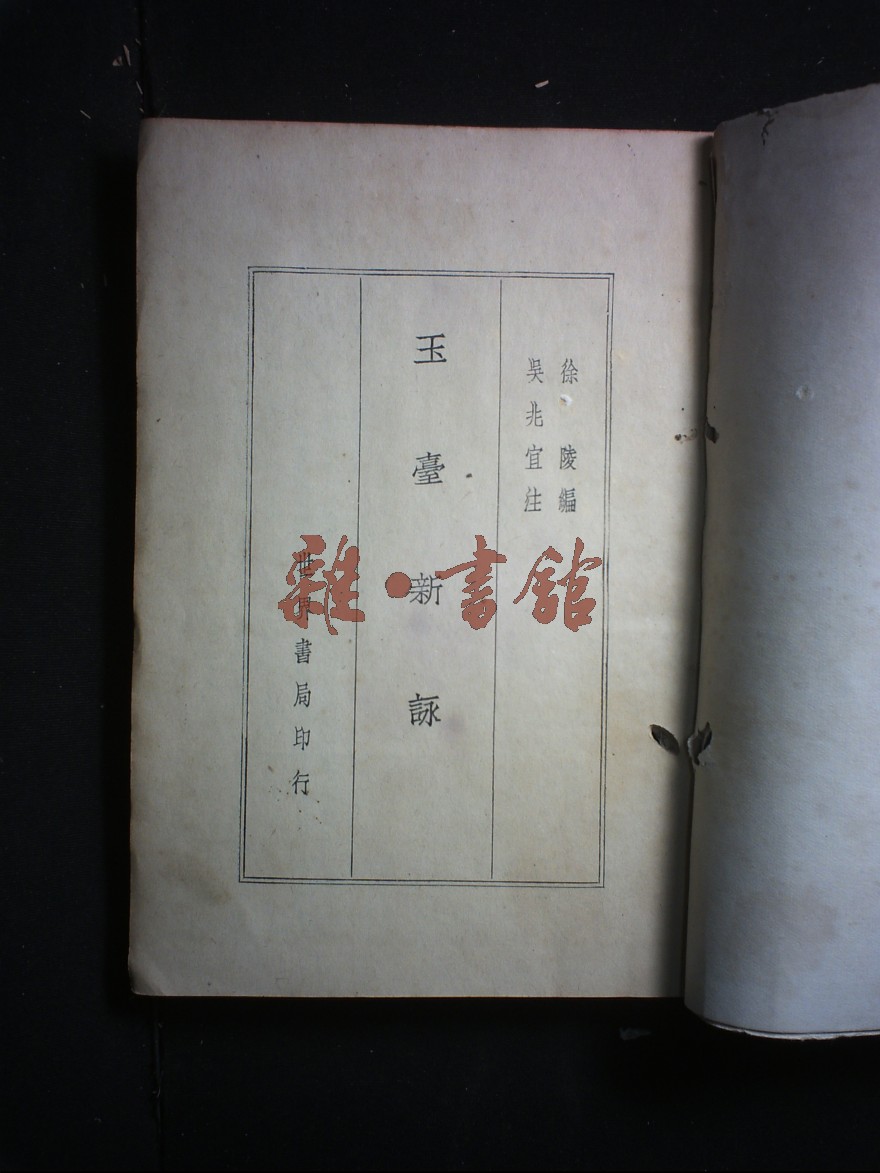 徐陵編
吳兆宜注
玉臺新詠
世界書局印行
雜·書館